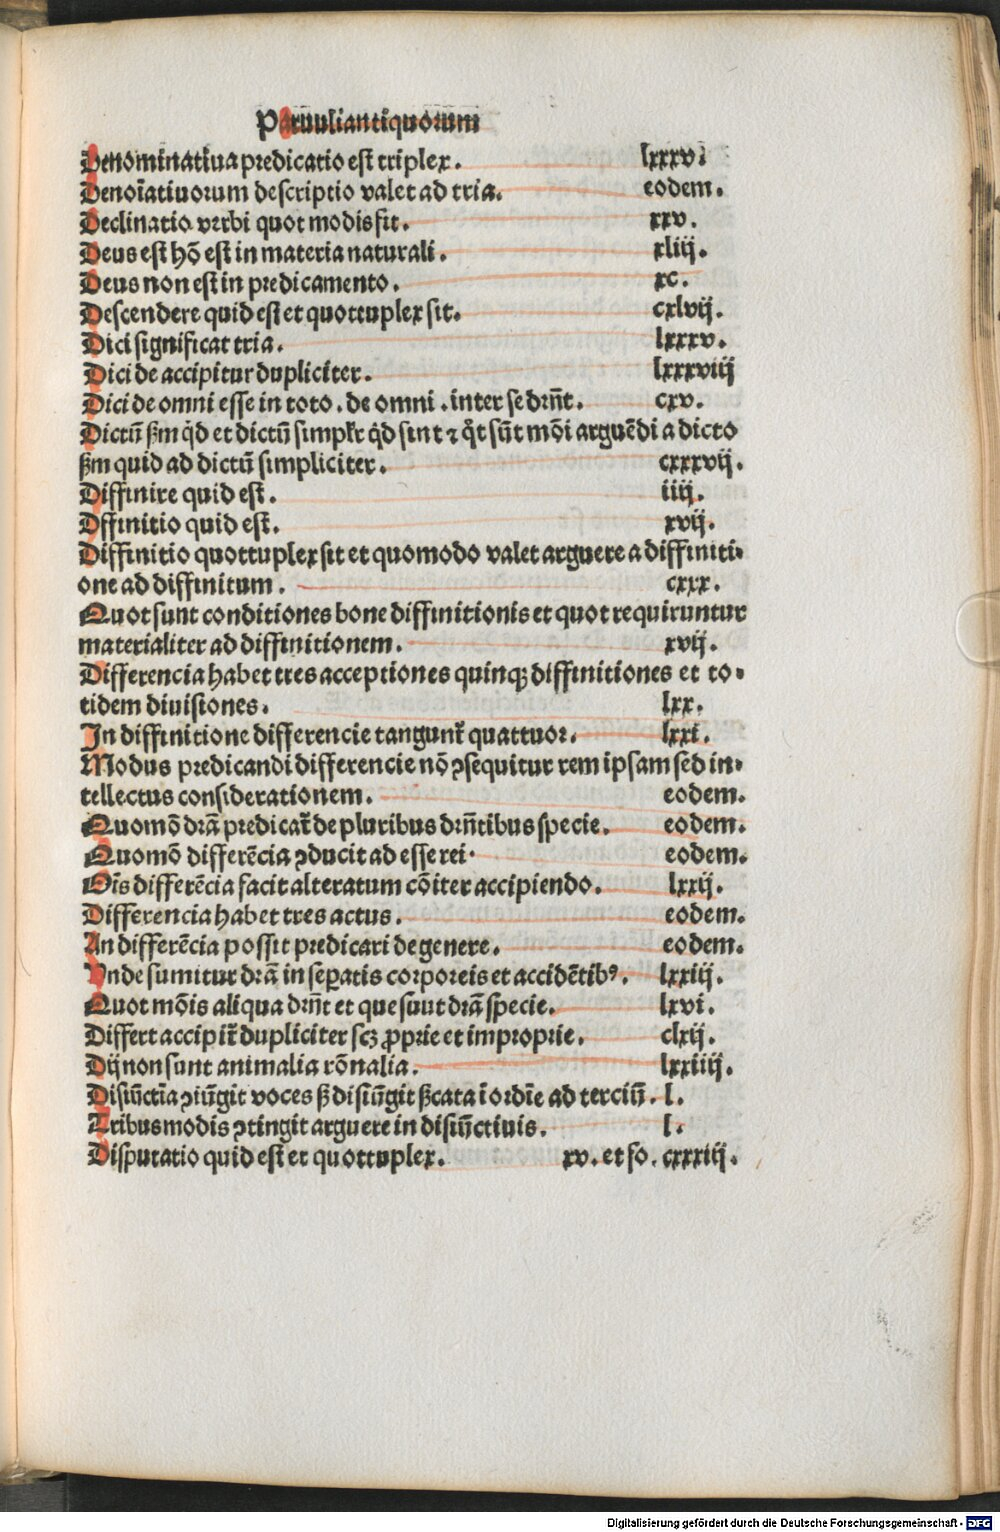 Paruuli antiquorum
Denominatiua predicatio est triplex. lxxxv.
Denoīatiuorum descriptio valet ad tria. eodem.
Declinatio verbi quot modis fit. xxv.
Deus est hō est in materia naturali. xliij.
Deus non est in predicamento. xc.
Descendere quid est et quottuplex sit. cxlvij.
Dici significat tria. lxxxv.
Dici de accipitur dupliciter. lxxxviij
Dici de omni esse in toto. de omni. inter se drn̄t. cxv.
Dictū ẞm q̇d et dictū simplr̄ q̇d sint ⁊ q̇t sūt mōi arguēdi a dicto
ẞm quid ad dictū simpliciter. cxxxvij.
Diffinire quid est. iiij.
Dffinitio quid est. xvij.
Diffinitio quottuplex sit et quomodo valet arguere a diffiniti⸗
one ad diffinitum. cxxx.
Quot sunt conditiones bone diffinitionis et quot requiruntur
materialiter ad diffinitionem. xvij.
Differencia habet tres acceptiones quinqꝫ diffinitiones et to⸗
tidem diuisiones. lxx.
In diffinitione differencie tangunt̄ quattuor. lxxi.
Modus predicandi differencie nō ꝯsequitur rem ipsam sed in⸗
tellectus considerationem. eodem.
Quomō drāa predicat̄ de pluribus drn̄tibus specie. eodem.
Quomō differēcia ꝯducit ad esse rei. eodem.
Oīs differēcia facit alteratum cōiter accipiendo. lxxij.
Differencia habet tres actus. eodem.
An differēcia possit predicari de genere. eodem.
Vnde sumitur drāa in seꝑatis corporeis et accidētibꝰ. lxxiij.
Quot mōis aliqua drn̄t et que sūut drāa specie. lxvi.
Differt accipit̄ dupliciter scꝫ ꝓprie et improprie. clxij.
Dij non sunt animalia rōnalia. lxxiiij.
Disiūctīa ꝯiūgit voces ẞ disiūgit ẞcata ī ordīe ad terciū. l.
Tribus modis ꝯtingit arguere in disiūctiuis. l.
Disputatio quid est et quottuplex. xv. et fo. cxxxiij.
Digitalisierung gefördert durch die Deutsche Forschungsgemeinschaft - DFG